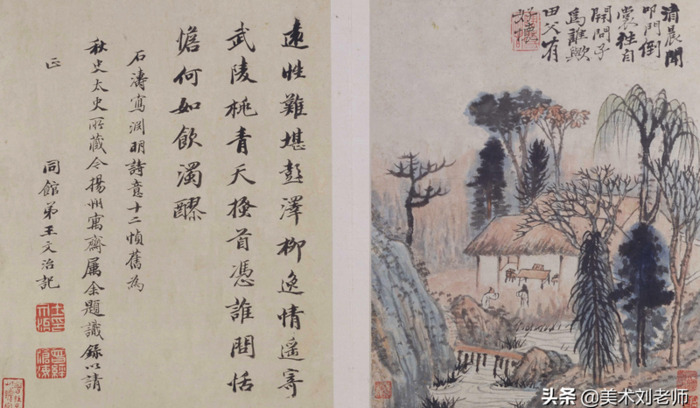 清晨聞
叩門倒
裳往自
開問子
為誰歟
田父有
好懷
遠性難堪彭澤柳逸情遥寄
武陵桃青天搔首憑誰問恬
憺何如飲濁醪
石濤寫淵明詩意十二幀舊為
秋史太史所藏今揚州寓齋属余題識錄以請
正
同館弟王文治記
头条 @美术刘老师